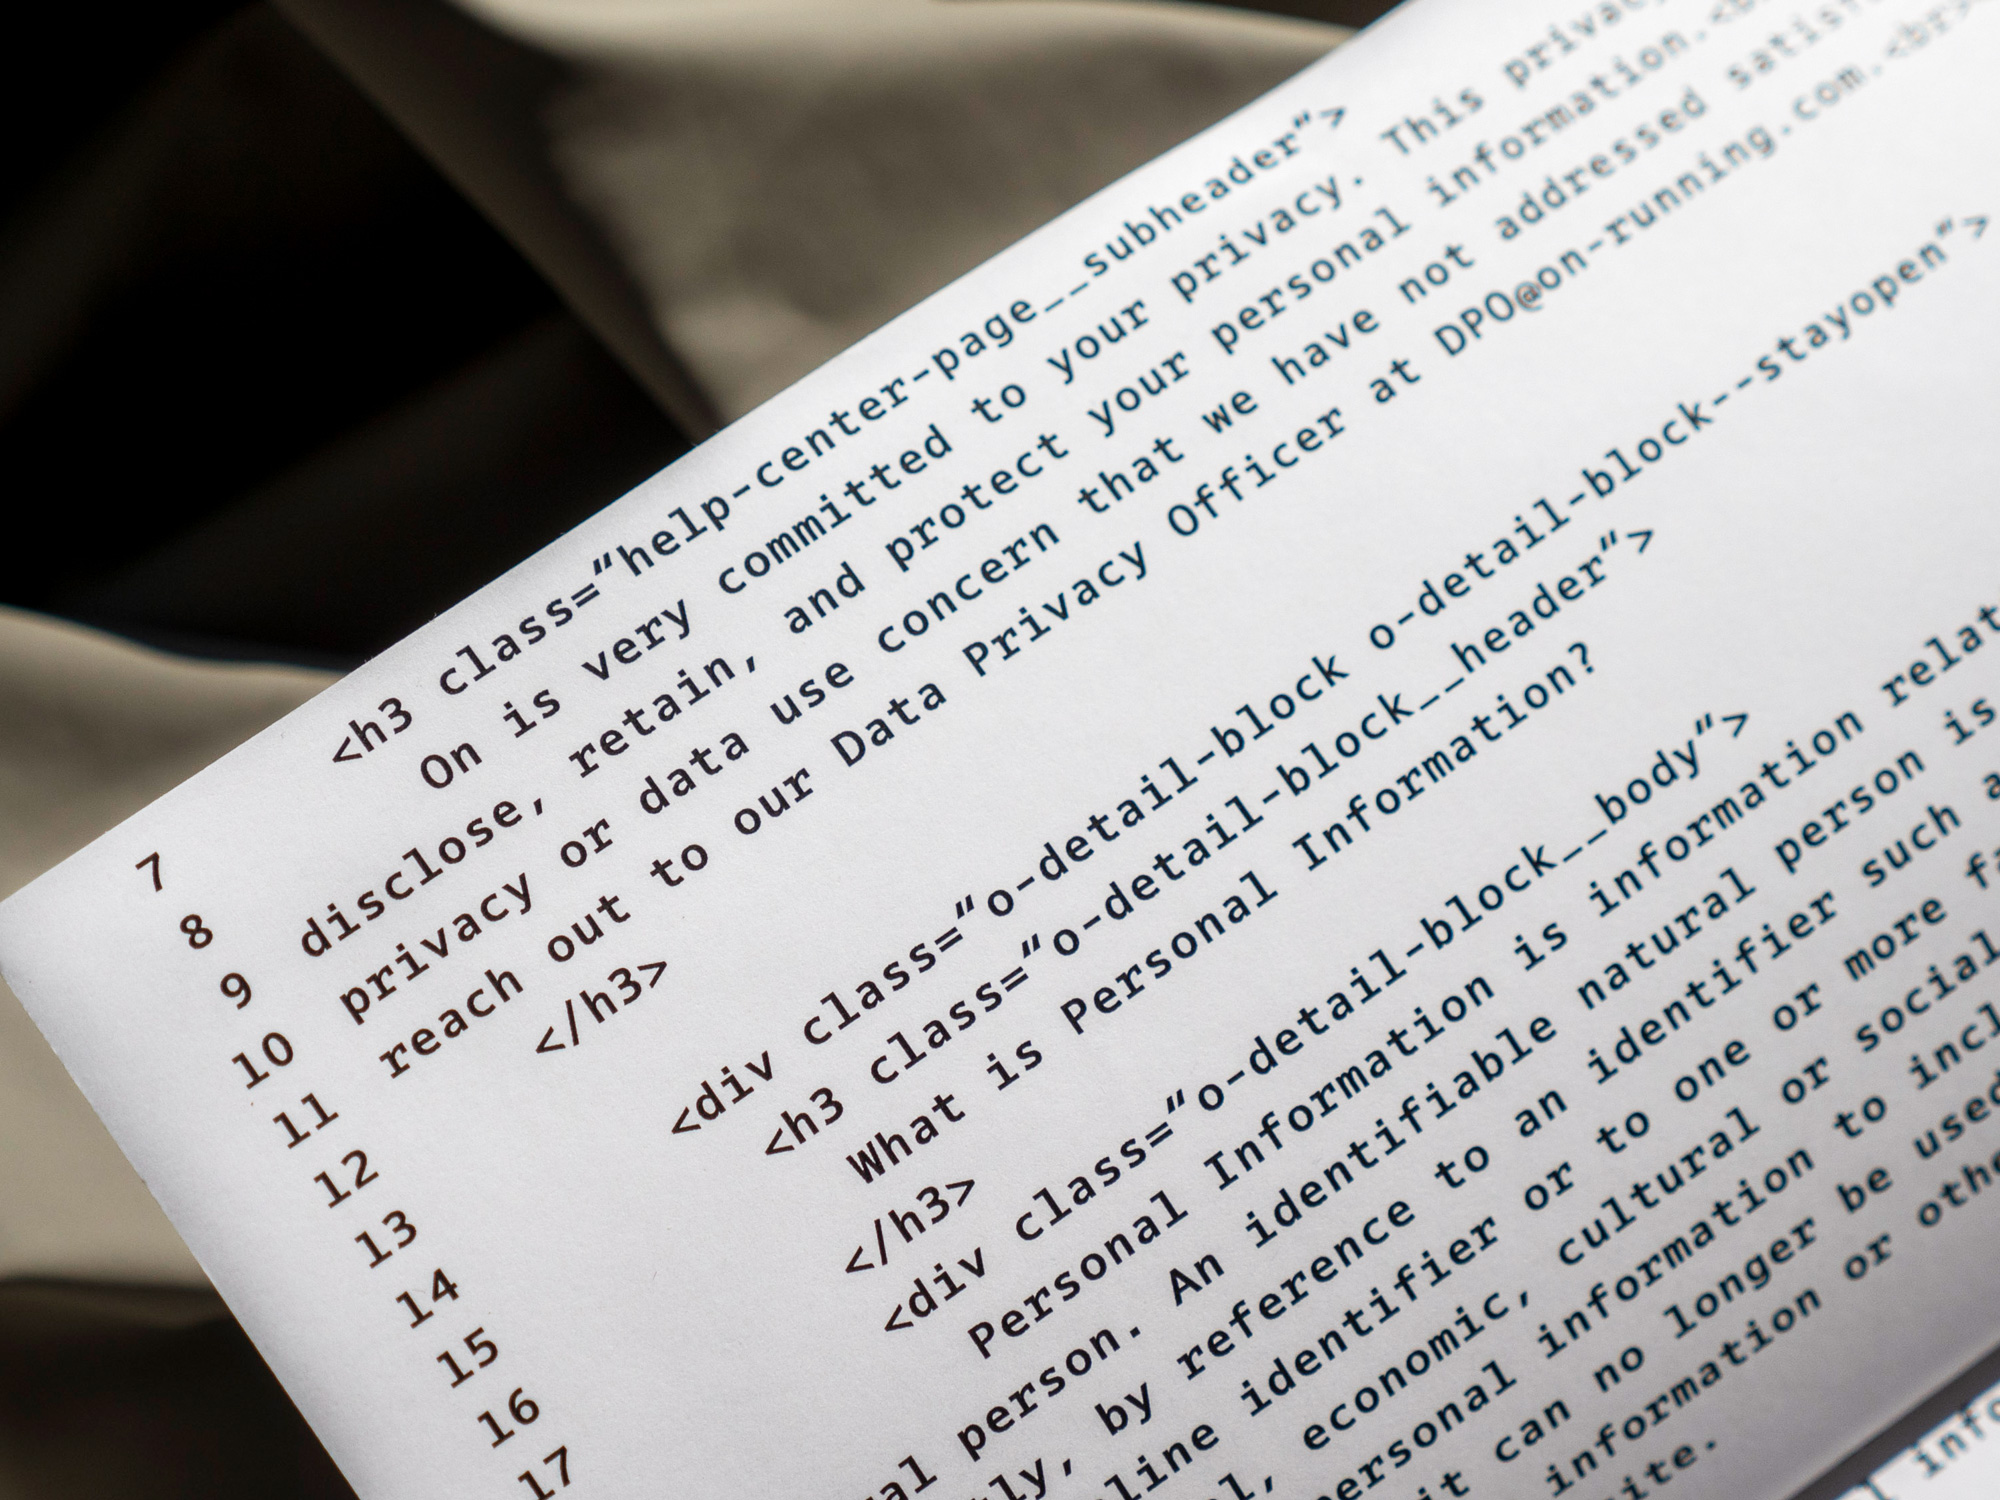 7 <h3 class="help-center-page__subheader">
8 On is very committed to your privacy. This privacy
9 disclose, retain, and protect your personal information.<b
10 privacy or data use concern that we have not addressed satisf
11 reach out to our Data Privacy Officer at DPO@on-running.com.<br>
12 </h3>
13
14 <div class="o-detail-block o-detail-block--stayopen">
15 <h3 class="o-detail-block__header">
16 What is Personal Information?
17 </h3>
<div class="o-detail-block__body">
Personal Information is information relat
al person. An identifiable natural person is
tly, by reference to an identifier such a
line identifier or to one or more fa
l, economic, cultural or social
personal information to incl
it can no longer be used
information or othe
ite.
info